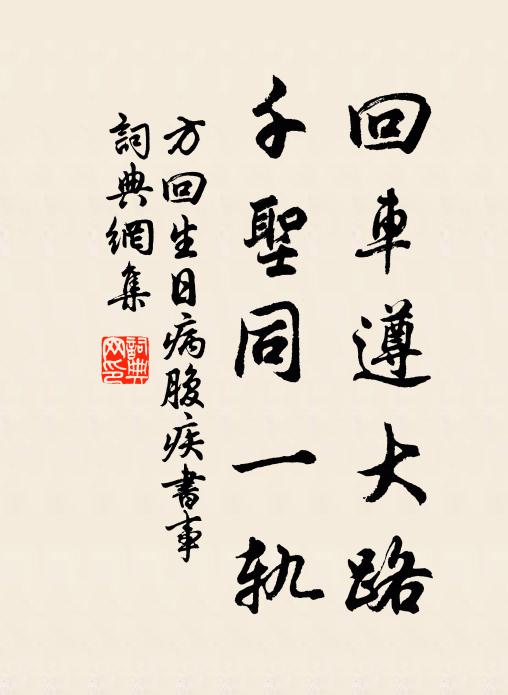 回車遵大路
千聖同一軌
方回生日病腹疾書事
詞典網集
詞典網印